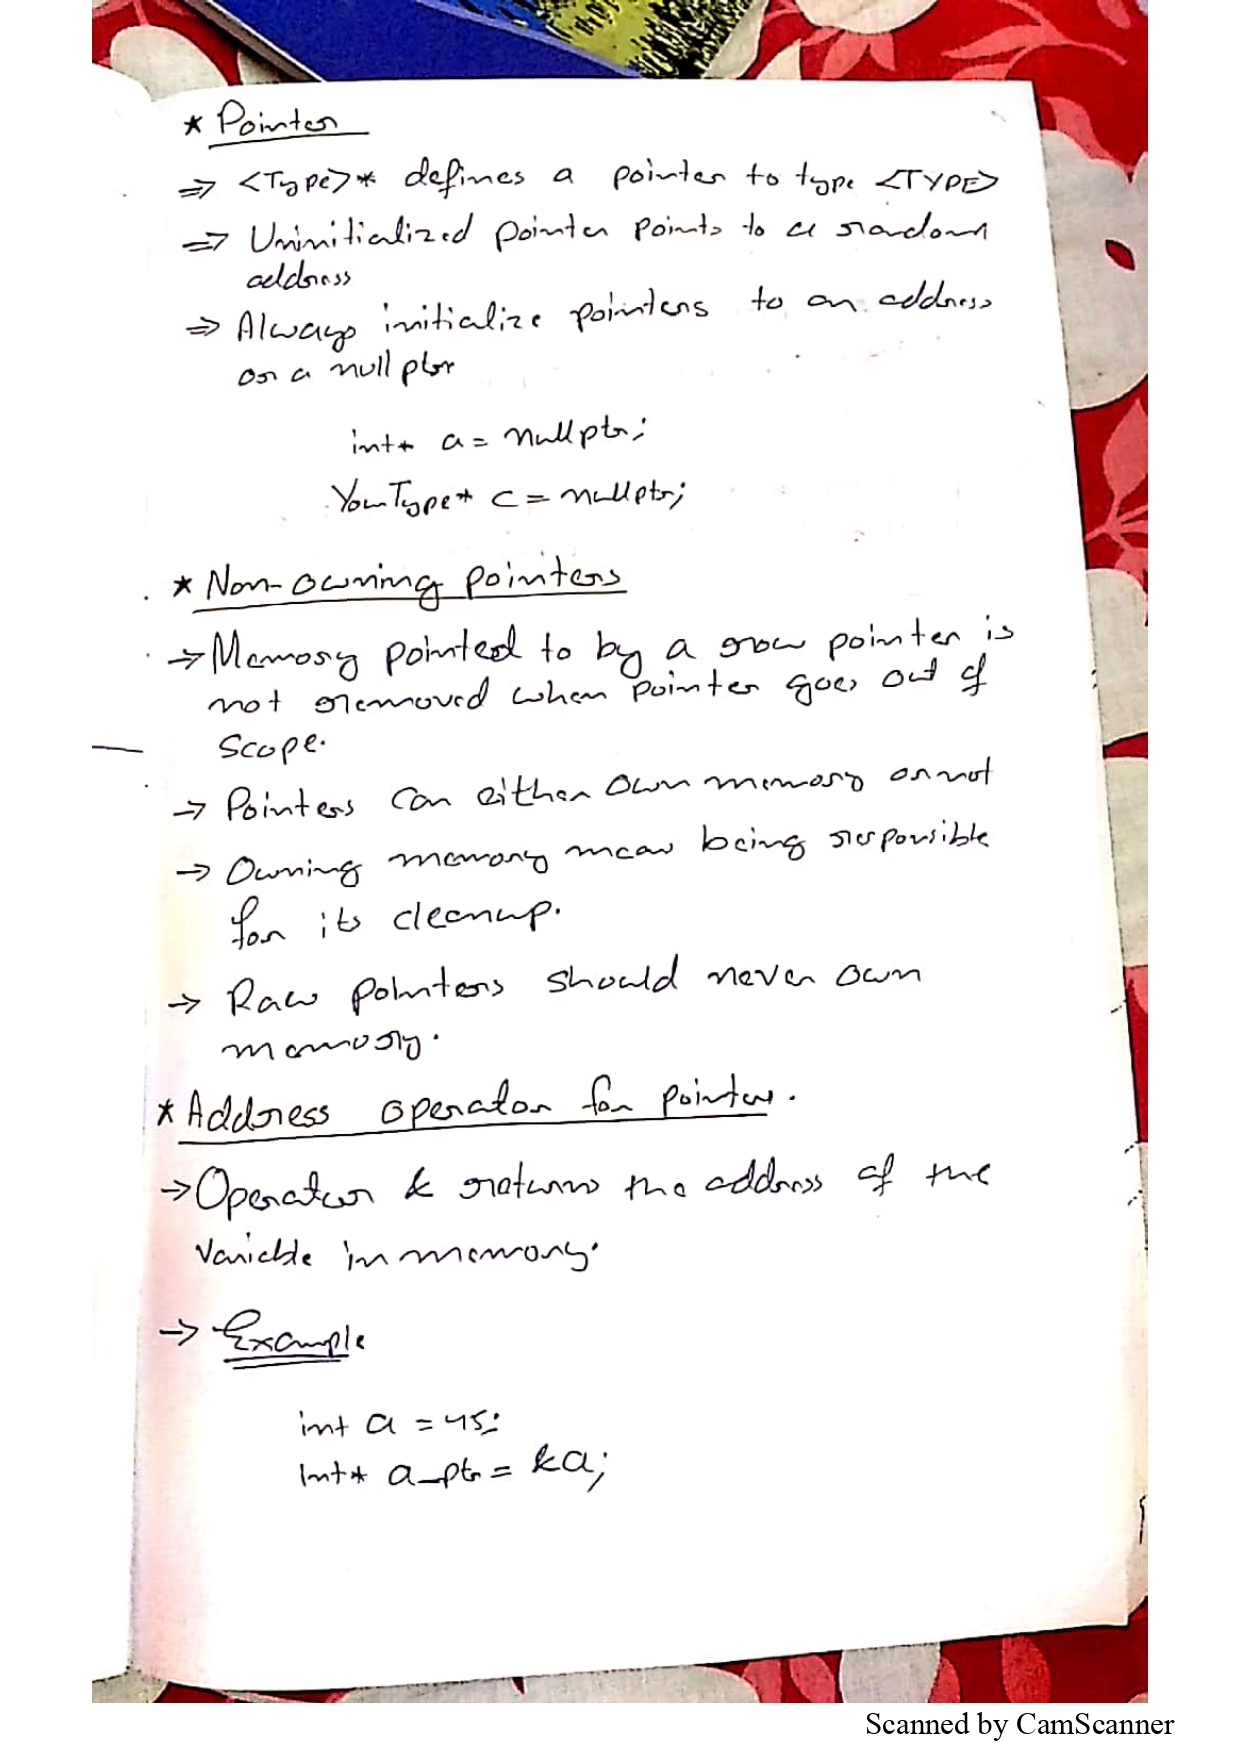 * Pointer
⇒ <Type>* defines a pointer to type <TYPE>
⇒ Uninitialized pointer points to a random
address
⇒ Always initialize pointers to an address
or a nullptr
int* a = nullptr;
YourType* c = nullptr;
* Non-owning pointers
→ Memory pointed to by a raw pointer is
not removed when pointer goes out of
scope.
→ Pointers can either own memory or not
→ Owning memory mean being responsible
for its cleanup.
→ Raw pointers should never own
memory.
* Address operator for pointer.
→ Operator & returns the address of the
variable in memory.
→ Example
int a = 45;
int* a_ptr = &a;
Scanned by CamScanner